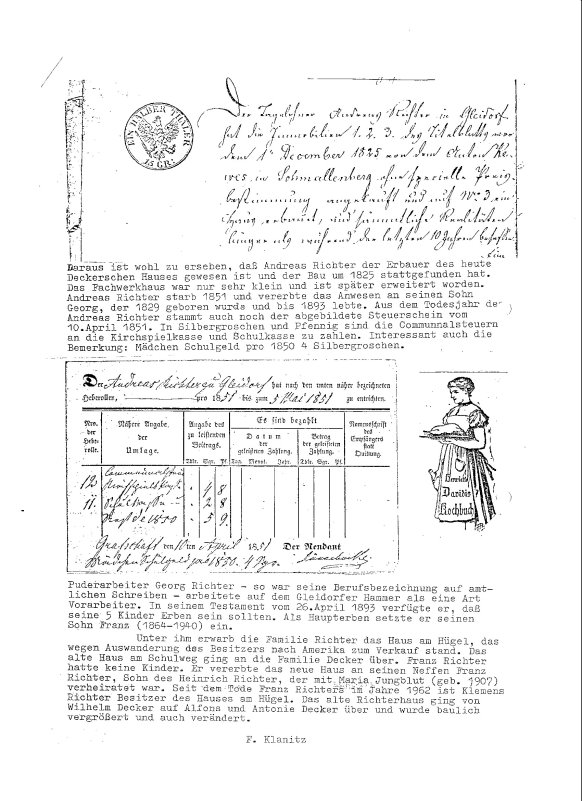 EIN HALBER THALER
15 GR:
Der Tagelöhner Andreas Richter in Gleidorf
hat die Immobilien 1. 2. 3. des Titelblatts
dem 1 December 1825 von dem Anton
in Schmallenberg ohne specielle Preis
bestimmung angekauft und auf No 3 ein
Haus erbauet, und sämmtliche Realitäten
länger als während der letzten 10 Jahren
Daraus ist wohl zu ersehen, daß Andreas Richter der Erbauer des heute
Deckerschen Hauses gewesen ist und der Bau um 1825 stattgefunden hat.
Das Fachwerkhaus war nur sehr klein und ist später erweitert worden.
Andreas Richter starb 1851 und vererbte das Anwesen an seinen Sohn
Georg, der 1829 geboren wurde und bis 1893 lebte. Aus dem Todesjahr de
Andreas Richter stammt auch noch der abgebildete Steuerschein vom
10.April 1851. In Silbergroschen und Pfennig sind die Communnalsteuern
an die Kirchspielkasse und Schulkasse zu zahlen. Interessant auch die
Bemerkung: Mädchen Schulgeld pro 1850 4 Silbergroschen.
Der Andreas Richter zu Gleidorf hat nach den unten näher bezeichneten
Heberollen, pro 1851 bis zum 5 Mai 1851 zu entrichten.
Nro. der Heberolle. Nähere Angabe. der Umlage. Angabe des zu leistenden Beitrags. Es sind bezahlt Datum der geleisteten Zahlung. Betrag der geleisteten Zahlung. Namensschrift des Empfängers statt Quittung.
Thlr. Sgr. Pf. Tag. Monat. Jahr. Thlr. Sgr. Pf.
12 4 8
11. 2 8
1850 5 9
Grafschaft den 10ten April 1851 Der Rendant
Mädchen Schulgeld pro 1850. 4 Sgr.
Henriette
Davidis
Kochbuch
Puderarbeiter Georg Richter - so war seine Berufsbezeichnung auf amt-
lichen Schreiben - arbeitete auf dem Gleidorfer Hammer als eine Art
Vorarbeiter. In seinem Testament vom 26.April 1893 verfügte er, daß
seine 5 Kinder Erben sein sollten. Als Haupterben setzte er seinen
Sohn Franz (1864-1940) ein.
Unter ihm erwarb die Familie Richter das Haus am Hügel, das
wegen Auswanderung des Besitzers nach Amerika zum Verkauf stand. Das
alte Haus am Schulweg ging an die Familie Decker über. Franz Richter
hatte keine Kinder. Er vererbte das neue Haus an seinen Neffen Franz
Richter, Sohn des Heinrich Richter, der mit Maria Jungblut (geb. 1907)
verheiratet war. Seit dem Tode Franz Richters im Jahre 1962 ist Klemens
Richter Besitzer des Hauses am Hügel. Das alte Richterhaus ging von
Wilhelm Decker auf Alfons und Antonie Decker über und wurde baulich
vergrößert und auch verändert.
F. Klanitz